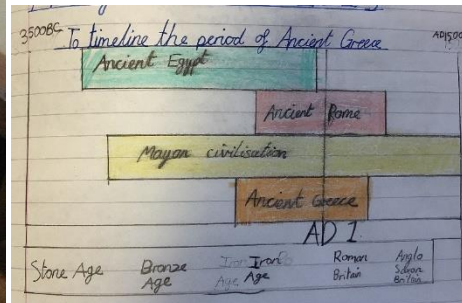 3500BC To timeline the period of Ancient Greece AD1500
Ancient Egypt
Ancient Rome
Mayan civilisation
Ancient Greece
AD 1
Stone Age Bronze Age Iron Age Roman Britain Anglo Saxon Britain